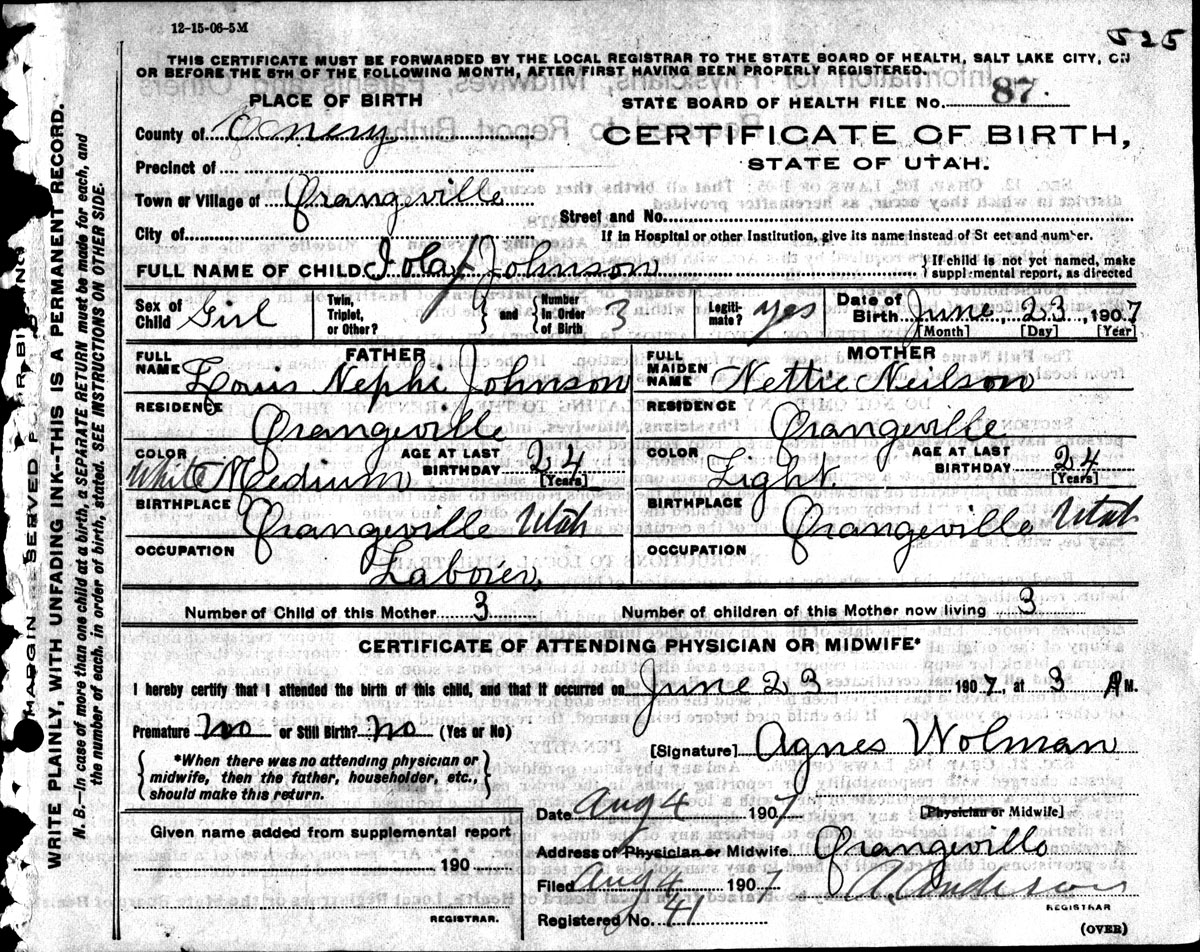 12-15-06-5M
525
THIS CERTIFICATE MUST BE FORWARDED BY THE LOCAL REGISTRAR TO THE STATE BOARD OF HEALTH, SALT LAKE CITY, ON
OR BEFORE THE 5TH OF THE FOLLOWING MONTH, AFTER FIRST HAVING BEEN PROPERLY REGISTERED.
PLACE OF BIRTH
STATE BOARD OF HEALTH FILE No. 87.
County of Emery
CERTIFICATE OF BIRTH,
STATE OF UTAH.
Precinct of
Town or Village of Orangeville
Street and No.
City of
If in Hospital or other Institution, give its name instead of St eet and number.
FULL NAME OF CHILD Iola Johnson { If child is not yet named, make supplemental report, as directed
Sex of Child Girl Twin, Triplet, or Other? } and { Number In Order of Birth 3 Legiti-mate? yes Date of Birth June, 23, 1907
[Month] [Day] [Year]
FATHER
MOTHER
FULL NAME Louis Nephi Johnson
FULL MAIDEN NAME Nettie Neilson
RESIDENCE Orangeville
RESIDENCE Orangeville
COLOR White Medium AGE AT LAST BIRTHDAY 24 [Years]
COLOR Light. AGE AT LAST BIRTHDAY 24 [Years]
BIRTHPLACE Orangeville Utah
BIRTHPLACE Orangeville Utah
OCCUPATION Laborer.
OCCUPATION
Number of Child of this Mother 3 Number of children of this Mother now living 3
CERTIFICATE OF ATTENDING PHYSICIAN OR MIDWIFE*
I hereby certify that I attended the birth of this child, and that it occurred on June 23 1907, at 3 M.
Premature no or Still Birth? no (Yes or No)
[Signature] Agnes Wolman
{ *When there was no attending physician or
midwife, then the father, householder, etc.,
should make this return. }
Date Aug 4 1907 [Physician or Midwife]
Given name added from supplemental report
190
Address of Physician or Midwife Orangeville
Filed Aug 4 1907
REGISTRAR
REGISTRAR.
Registered No. 41
(OVER)
MARGIN RESERVED FOR BINDING
WRITE PLAINLY, WITH UNFADING INK--THIS IS A PERMANENT RECORD.
N. B.—In case of more than one child at a birth, a SEPARATE RETURN must be made for each, and
the number of each, in order of birth, stated. SEE INSTRUCTIONS ON OTHER SIDE.